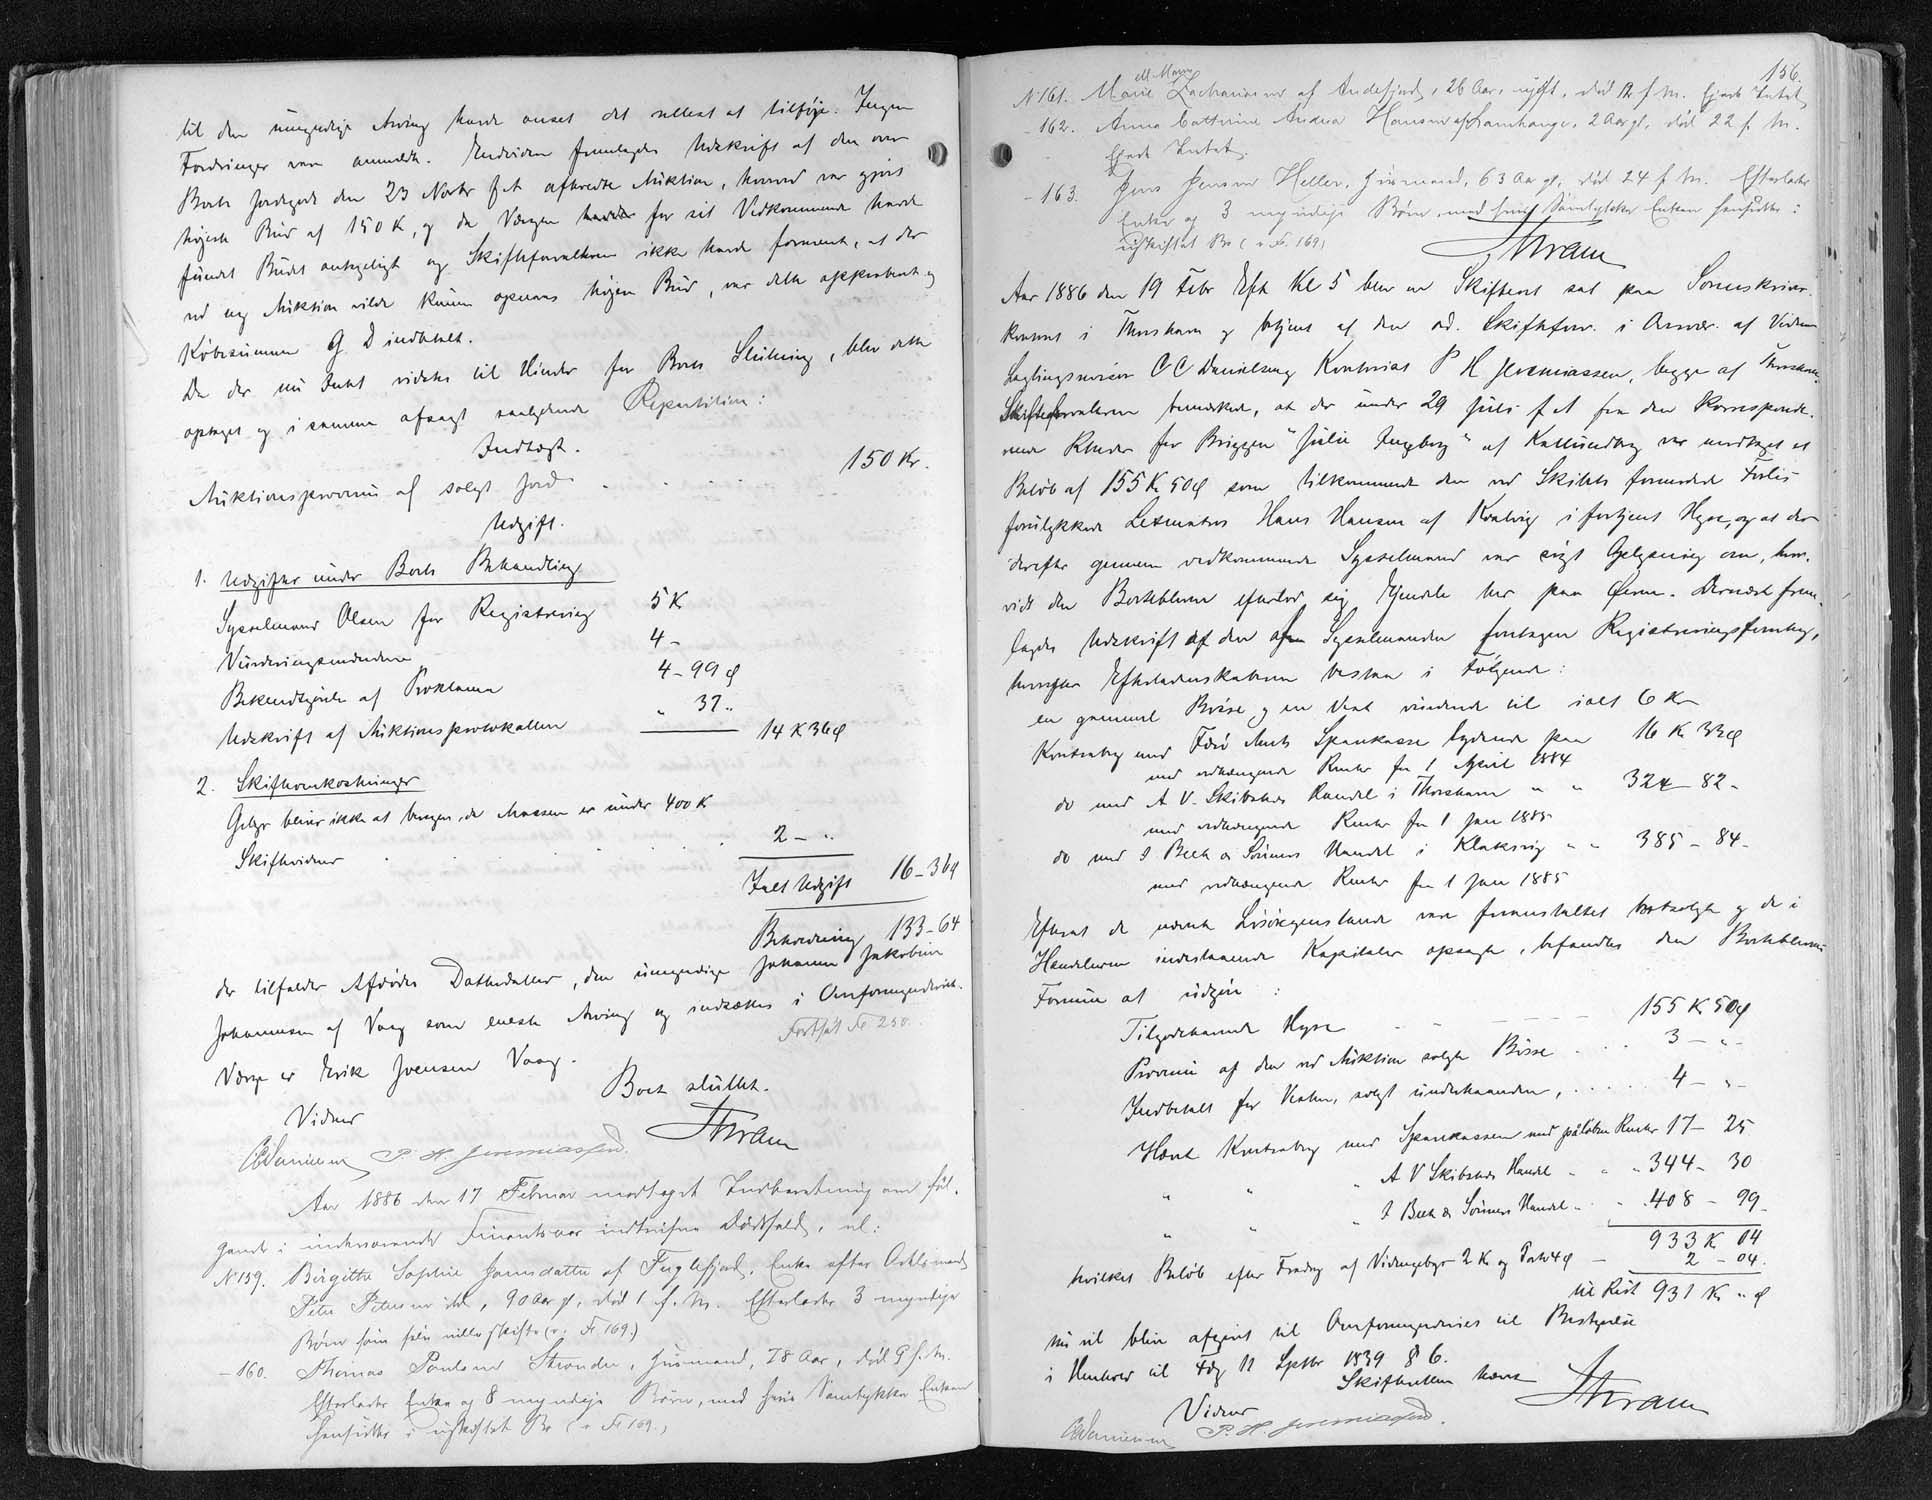 til den umyndige Arving havde anset det rettest at tilføje. Ingen
Fordringer vare anmeldte. Endvidere fremlagdes Udskrift af den over
Boets Jordegods den 23 Novbr f A afholdte Auktion, hvorved var gjort
højeste Bud af 150 K, og da Værgen for sit Vedkommende havde
fundet Budet antageligt og Skifteforvalteren ikke havde formeent, at der
ved ny Auktion vilde kunne opnaaes højere Bud, var dette approberet og
Købesummen G D indbetalt.
Da der nu Intet vidstes til Hinder for Boets Slutning, blev dette
optaget og i samme afsagt saalydende Repartition:
Indtægt.
Auktionsprovenu af solgt Jord 150 Kr.
Udgift.
1. Udgifter under Boets Behandling
Sysselmand Olsen for Registrering 5 K
Vurderingsmændene 4 -
Bekendtgørelse af Proklama 4 - 99 ø
Udskrift af Auktionsprotokollen " 37 "
14 K 36 ø
2. Skifteomkostninger
Gebyr bliver ikke at beregne, da Massen er under 400 K
Skiftevidner 2 - "
Ialt Udgift 16 - 36 ø
Beholdning 133 - 64
der tilfalder Afdødes Datterdatter, den umyndige Johanne Jakobine
Johannesen af Vaag som eneste Arving og indsættes i Overformynderiet.
Fortsat Fo 250.
Værge er Erik Joensen Vaag.
Boet sluttet.
Vidner
CCDanielsen P. H. Jeremiassen
Aar 1886 den 17 Februar modtaget Indberetning om føl-
gende i indeværende Finantsaar indtrufne Dødsfald, nl:
No 159. Birgitte Sophie Joensdatter af Fuglefjord, Enke efter Odelsmand
Peter Petersen ibd, 90 Aar gl, død 1 f. M. Efterlader 3 myndige
Børn som selv ville skifte (v. Fo 169.)
- 160. Thomas Poulsen Strander, Husmand, 78 Aar, død 9 f. M.
Efterlader Enke og 8 myndige Børn, med hvis Samtykke Enken
hensidder i uskiftet Bo (v Fo 169.)
156.
No 161. Marie Zachariasen af Andefjord, 26 Aar, ugift, død 12 f M. Ejede Intet
- 162. Anna Cathrine Andrea Hansen af Framhauge, 2 Aar gl, død 22 f. M.
Ejede Intet.
- 163. Jens Jensen Heller, Husmand, 63 Aar gl, død 24 f M. Efterlader
Enke og 3 myndige Børn, med hvis Samtykke Enken hensidder i
uskiftet Bo (v Fo. 169)
Aar 1886 den 19 Febr Eft Kl 5 blev en Skifteret sat paa Sorenskriver-
kontoret i Thorshavn og betjent af den ord. Skifteforv. i Overvær. af Vidnerne
Lagtingsmand C C Danielsen og Kontorist P H Jeremiassen, begge af Thorshavn.
Skifteforvalteren bemærkede, at der under 29 Juli f A fra den Korresponde-
rende Rheder for Briggen "Julie Ingeborg" af Kallundborg var modtaget et
Beløb af 155 K 50 ø som tilkommende den ved Skibets formodede Forlis
forulykkede Letmatros Hans Hansen af Kvalvig i fortjent Hyre, og at der
derefter gennem vedkommende Sysselmand var søgt Oplysning om, hvor-
vidt den Borteblevne efterlod sig Ejendele her paa Øerne. Dernæst frem-
lagdes Udskrift af den af Sysselmanden foretagne Registreringsforretning,
hvorefter Efterladenskaberne bestaa i Følgende:
en gammel Bøsse og en Vest vurderede til ialt 6 Kr
Kontrabog med Færø Amts Sparekasse lydende paa 16 Kr 33 ø
med vedhængende Renter fra 1 April 1884
do med A V. Skibsteds Handel i Thorshavn " " 324 - 82 -
med vedhængende Renter fra 1 Jan 1885
do med I Bech & Sönners Handel i Klaksvig " " 385 - 84 -
med vedhængende Renter fra 1 Jan 1885
Efterat de nævnte Løsøregenstande vare foranstaltet bortsolgte og de i
Handelerne indestaaende Kapitaler opsagte, befandtes den Bortebleven
Formue at udgøre:
Tilgodehavende Hyre 155 K 50 ø
Provenu af den ved Auktion solgte Bøsse 3 - " -
Indbetalt for Vesten, solgt underhaanden, 4 - " -
Hævet Kontrabog med Sparekassen med påløbne Renter 17 - 25
" " " A V Skibsteds Handel - " " 344 - 30
" " " I Bech & Sönners Handel " " 408 - 99
933 K 04
hvilket Beløb efter Fradrag af Vidnegebyr 2 K og Porto 4 ø - 2 - 04.
til Rest 931 Kr " ø
nu vil blive afgivet til Overformynderiet til Bestyrelse
i Henhold til Fdg 11 Septbr 1839 § 6.
Skifteretten hævet
Vidner
CCDanielsen P. H. Jeremiassen.